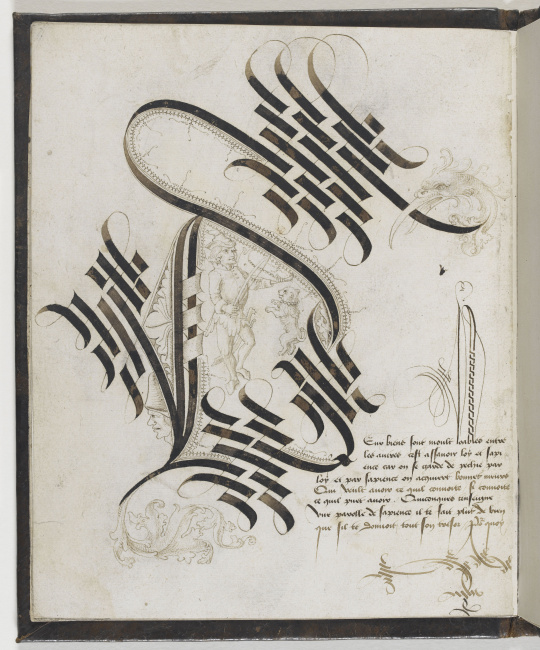 Eur biens sont moult loables entre
les autres cest assauoir loy et sapi
ence car on se garde de peche par
loy et par sapience on acquiert bonnes meurs
Qui veult auoir ce quil conuoite si conuoite
ce quil puet auoir Quiconques tenseigne
vne parolle de sapience il te fait plus de bien
que sil te donnoit tout son tresor Po quoy